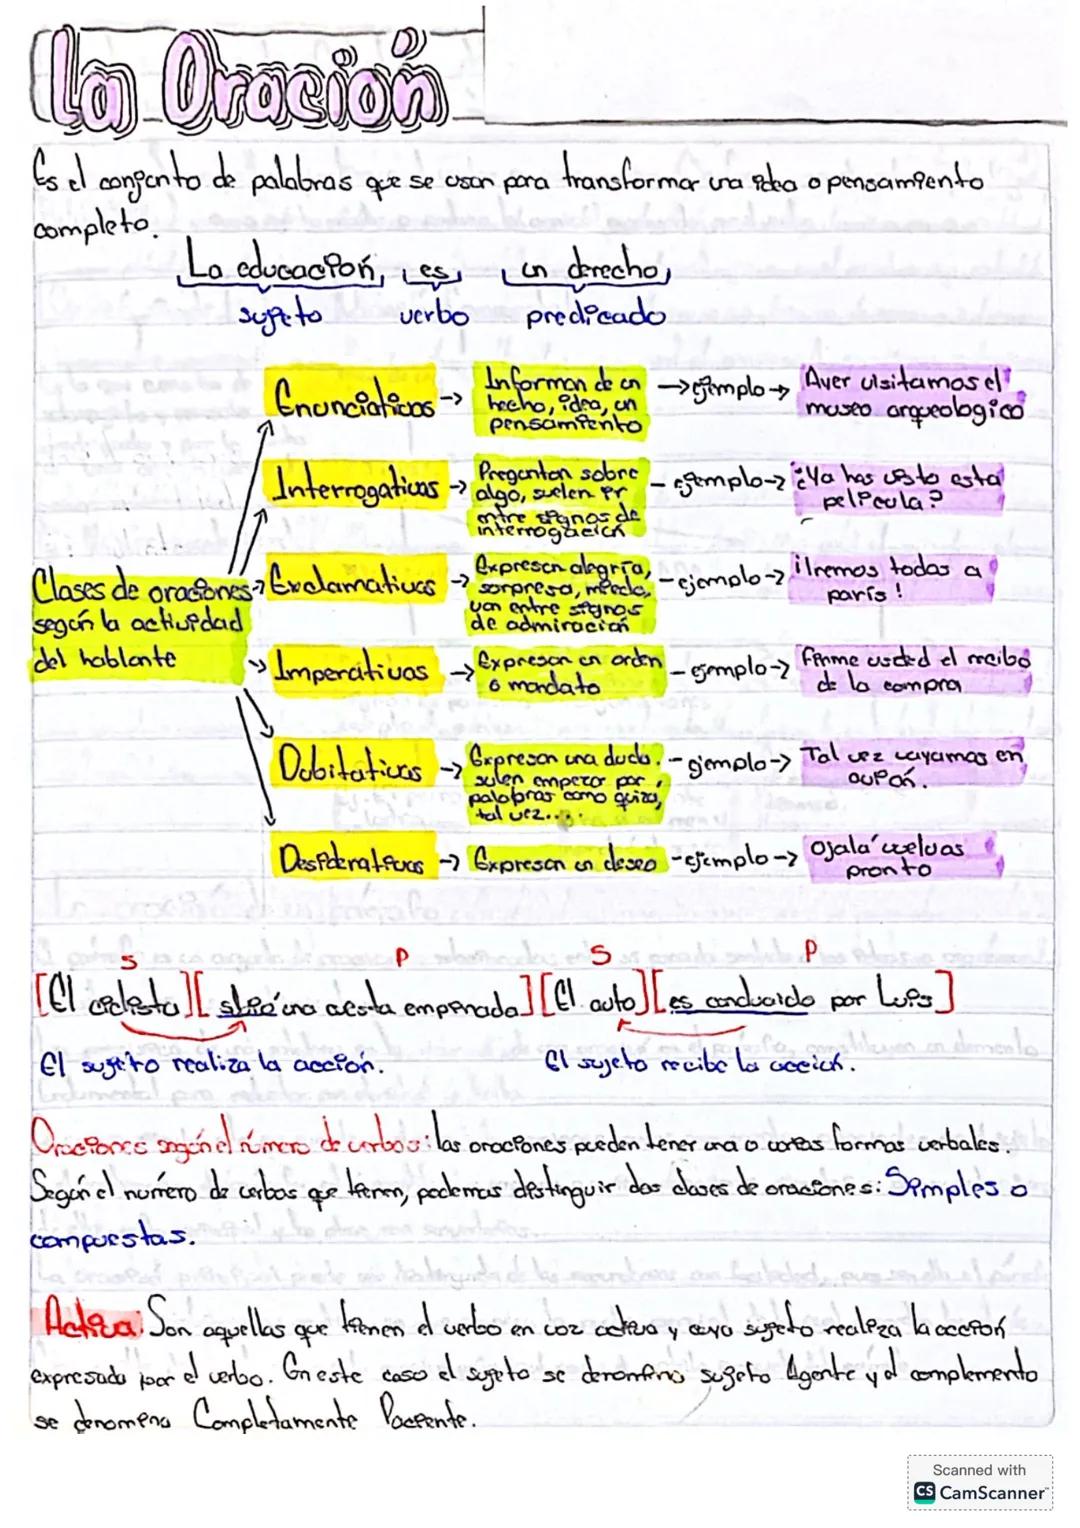 La Oración
Es el conjunto de palabras que se usan para transformar una idea o pensamiento
completo.
La educación, es un derecho,
sujeto verbo predicado
Enunciativas -> Informan de un hecho, idea, un pensamiento -> ejemplo -> Ayer visitamos el museo arqueologico
Interrogativas -> Preguntan sobre algo, suelen ir entre signos de interrogación - ejemplo -> ¿Ya has visto esta pelicula?
Clases de oraciones según la actividad del hablante
Exclamativas -> Expresan alegría, sorpresa, miedo, van entre signos de admiración - ejemplo -> ¡Iremos todas a parís!
Imperativas -> Expresan un orden o mandato - ejemplo -> firme usded el recibo de la compra
Dubitativas -> Expresan una duda. sulen empezar por palabras como quiza, tal vez.... - ejemplo -> Tal vez vayamos en
Desiderativas -> Expresan un deseo - ejemplo -> Ojalá vuelvas pronto
S P S P
[El ciclista][subió una cuesta empinada][El auto][es conducido por Luis]
El sujeto realiza la acción. El sujeto recibe la acción.
Oraciones según el número de verbos: las oraciones pueden tener una o varias formas verbales.
Según el número de verbos que tienen, podemos distinguir dos clases de oraciones: Simples o
compuestas.
Activa: Son aquellas que tienen el verbo en voz activa y cuyo sujeto realiza la acción
expresada por el verbo. En este caso el sujeto se denomina sujeto Agente y el complemento
se denomina Completamente Paciente.
Scanned with
CS CamScanner